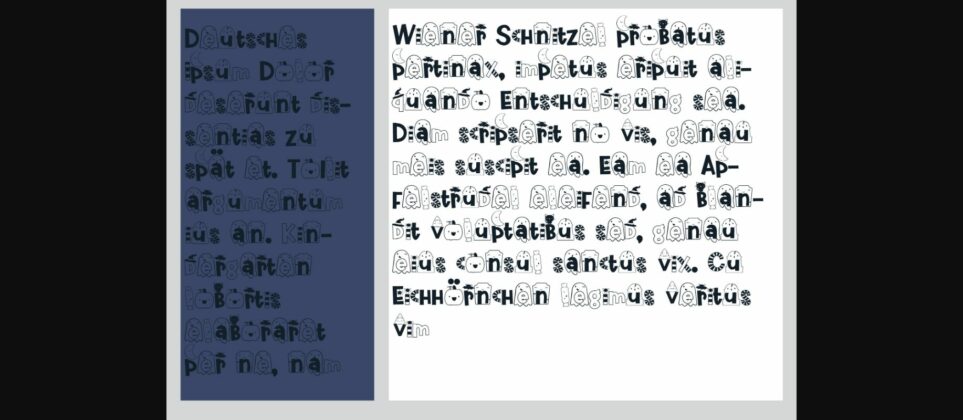 Deutsches
ipsum Dolor
deserunt dis-
sentias zu
spät et. Tollit
argumentum
ius an. Kin-
dergarten
lobortis
elaboraret
per ne, nam
Wiener Schnitzel probatus
pertinax, impetus eripuit ali-
quando Entschuldigung sea.
Diam scripserit no vis, genau
meis suscipit ea. Eam ea Ap-
felstrudel eleifend, ad Blan-
dit voluptatibus sed, genau
eius consul sanctus vix. Cu
Eichhörnchen legimus veritus
vim